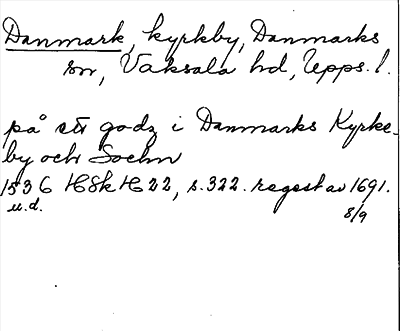 Danmark, kyrkby, Danmarks
sn, Vaksala hd, Upps. l.
på ett godz i Danmarks Kyrke-
by och Sochn
1536 HSkH 22, s. 322. regest av 1691.
u.d. 8/9